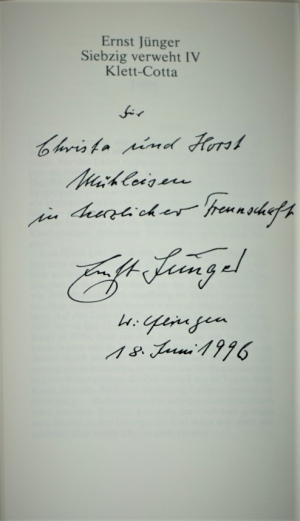 Ernst Jünger
Siebzig verweht IV
Klett-Cotta
für
Christa und Horst
Mühleisen
in herzlicher Freundschaft
Ernst Jünger
Wilflingen
18. Juni 1996